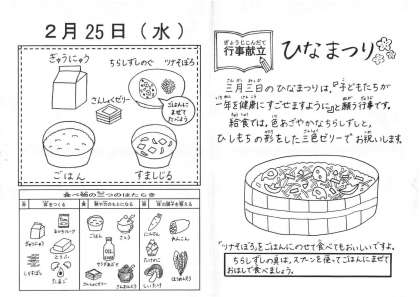 2月25日(水)
ぎゅうにゅう
ちらしずしのぐ
ツナそぼろ
さんしょくゼリー
ごはんに
まぜて
たべよう
ごはん
すましじる
食べ物の三つのはたらき
ぎゅうにゅう
とうふ
たまご
ごはん
さとう
にんじん
れんこん
たけのこ
しいたけ
ぎょうじこんだて
行事献立
ひなまつり
三月三日のひなまつりは、『子どもたちが
一年を健康にすごせますように』と願う行事です。
給食では、色あざやかなちらしずしと、
ひしもちの形をした三色ゼリーでお祝いします。
『ツナそぼろ』をごはんにのせて食べてもおいしいですよ。
ちらしずしの具は、スプーンを使ってごはんにまぜて
おはしで食べましょう。